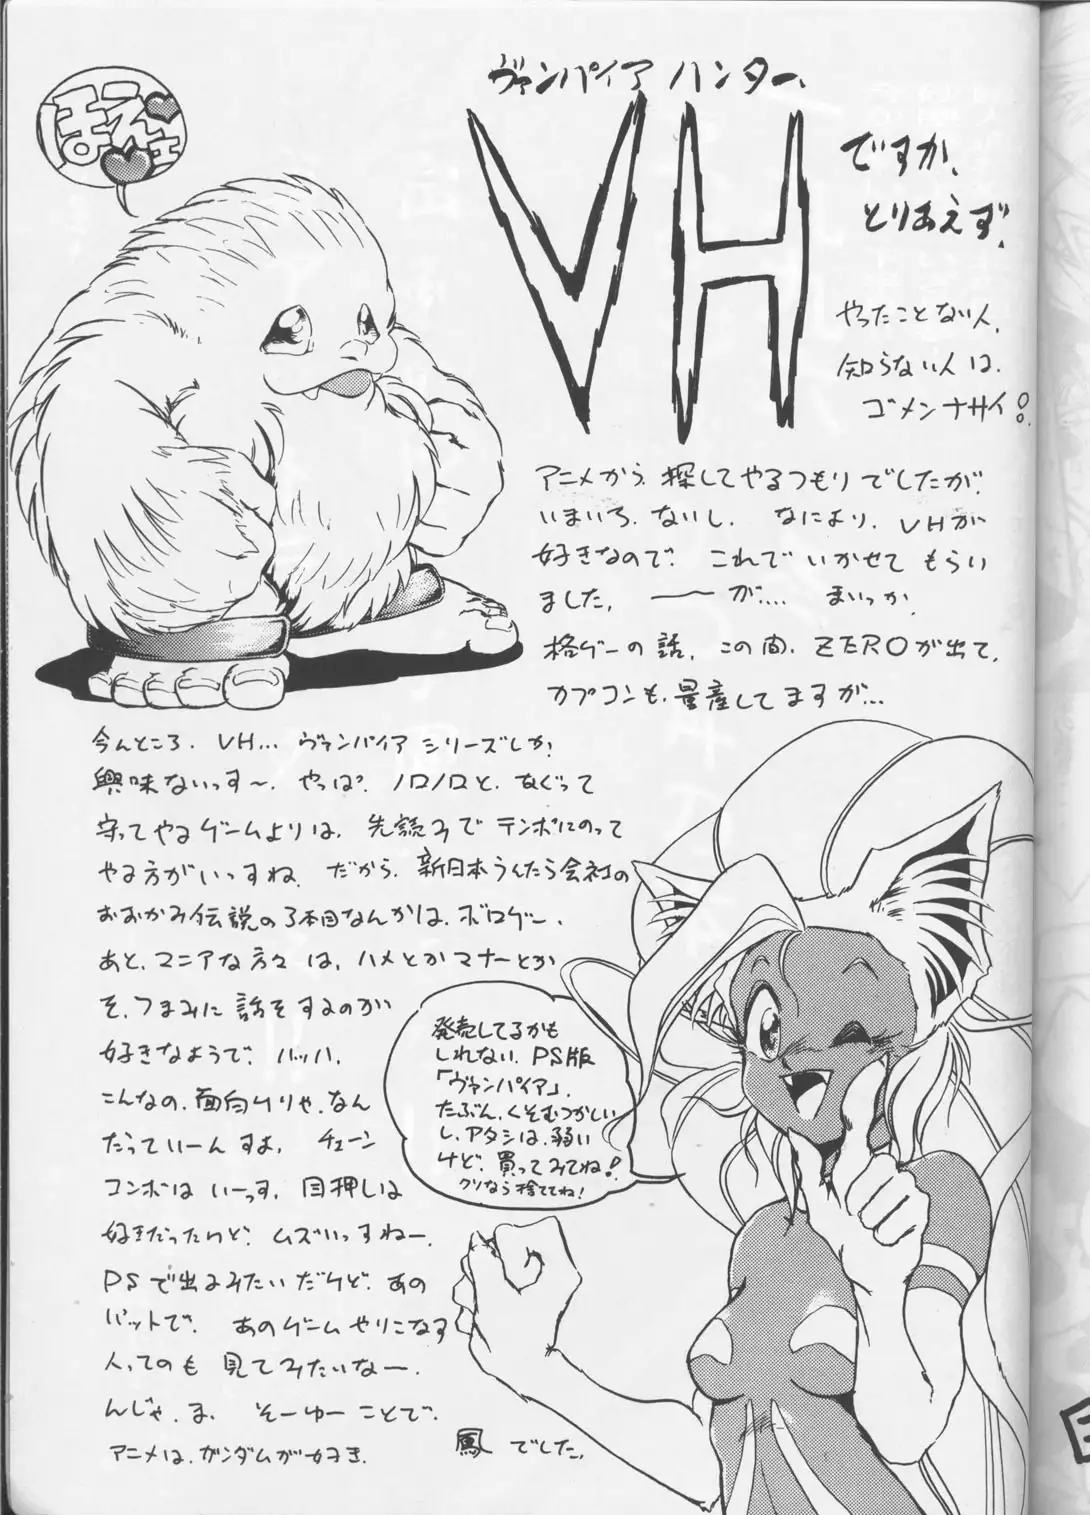 ほえェ
ヴァンパイア ハンター、
VH
ですか、
とりあえず、
やったことない人、
知らない人は、
ゴメンナサイ!
アニメから、探してやるつもりでしたが、
いまいち、ないし、なにより、VHが
好きなので、これで いかせて もらい
ました、 ――が…、まいっか、
格ゲーの話、この間、ZEROが出て、
カプコンも、量産してますが…
今んところ、VH…ヴァンパイア シリーズしか、
興味ないっす〜、やっぱ、ノロノロと、なぐって
守ってやるゲームよりは、先読みで テンポにのって
やる方がいっすね、だから、新日本うんたら会社の
おおかみ伝説の3本目なんかは、ボロゲー、
あと、マニアな方々は、ハメとかマナーとか
そ、つまみに 話をするのが
好きなようで、バッハ、
こんなの、面白けりゃ、なん
だっていーんすよ、チェーン
コンボは いーっす、目押しは
好きだったけど、ムズいっすねー、
PSで出るみたいだけど、あの
パットで、あのゲームやりこなす
人ってのも 見てみたいなー、
んじゃ、ま、そーゆーことで、
アニメは、ガンダムが好き、
鳳 でした、
発売してるかも
しれない、PS版
「ヴァンパイア」、
たぶん、くそむつかしい
し、アタシは、弱い
けど、買ってみてね!
クソなら捨ててね!